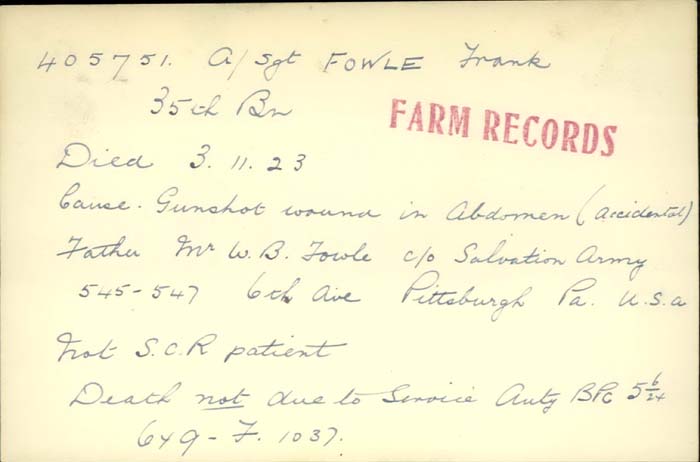 405751. A/Sgt FOWLE Frank
35th Bn
FARM RECORDS
Died 3. 11. 23
Cause. Gunshot wound in Abdomen (accidental)
Father Mr W. B. Fowle c/o Salvation Army
545-547 6th Ave Pittsburgh Pa. U.S.a
Not S.C.R patient
Death not due to Service Auty BPC 5 6/24
649-F. 1037.